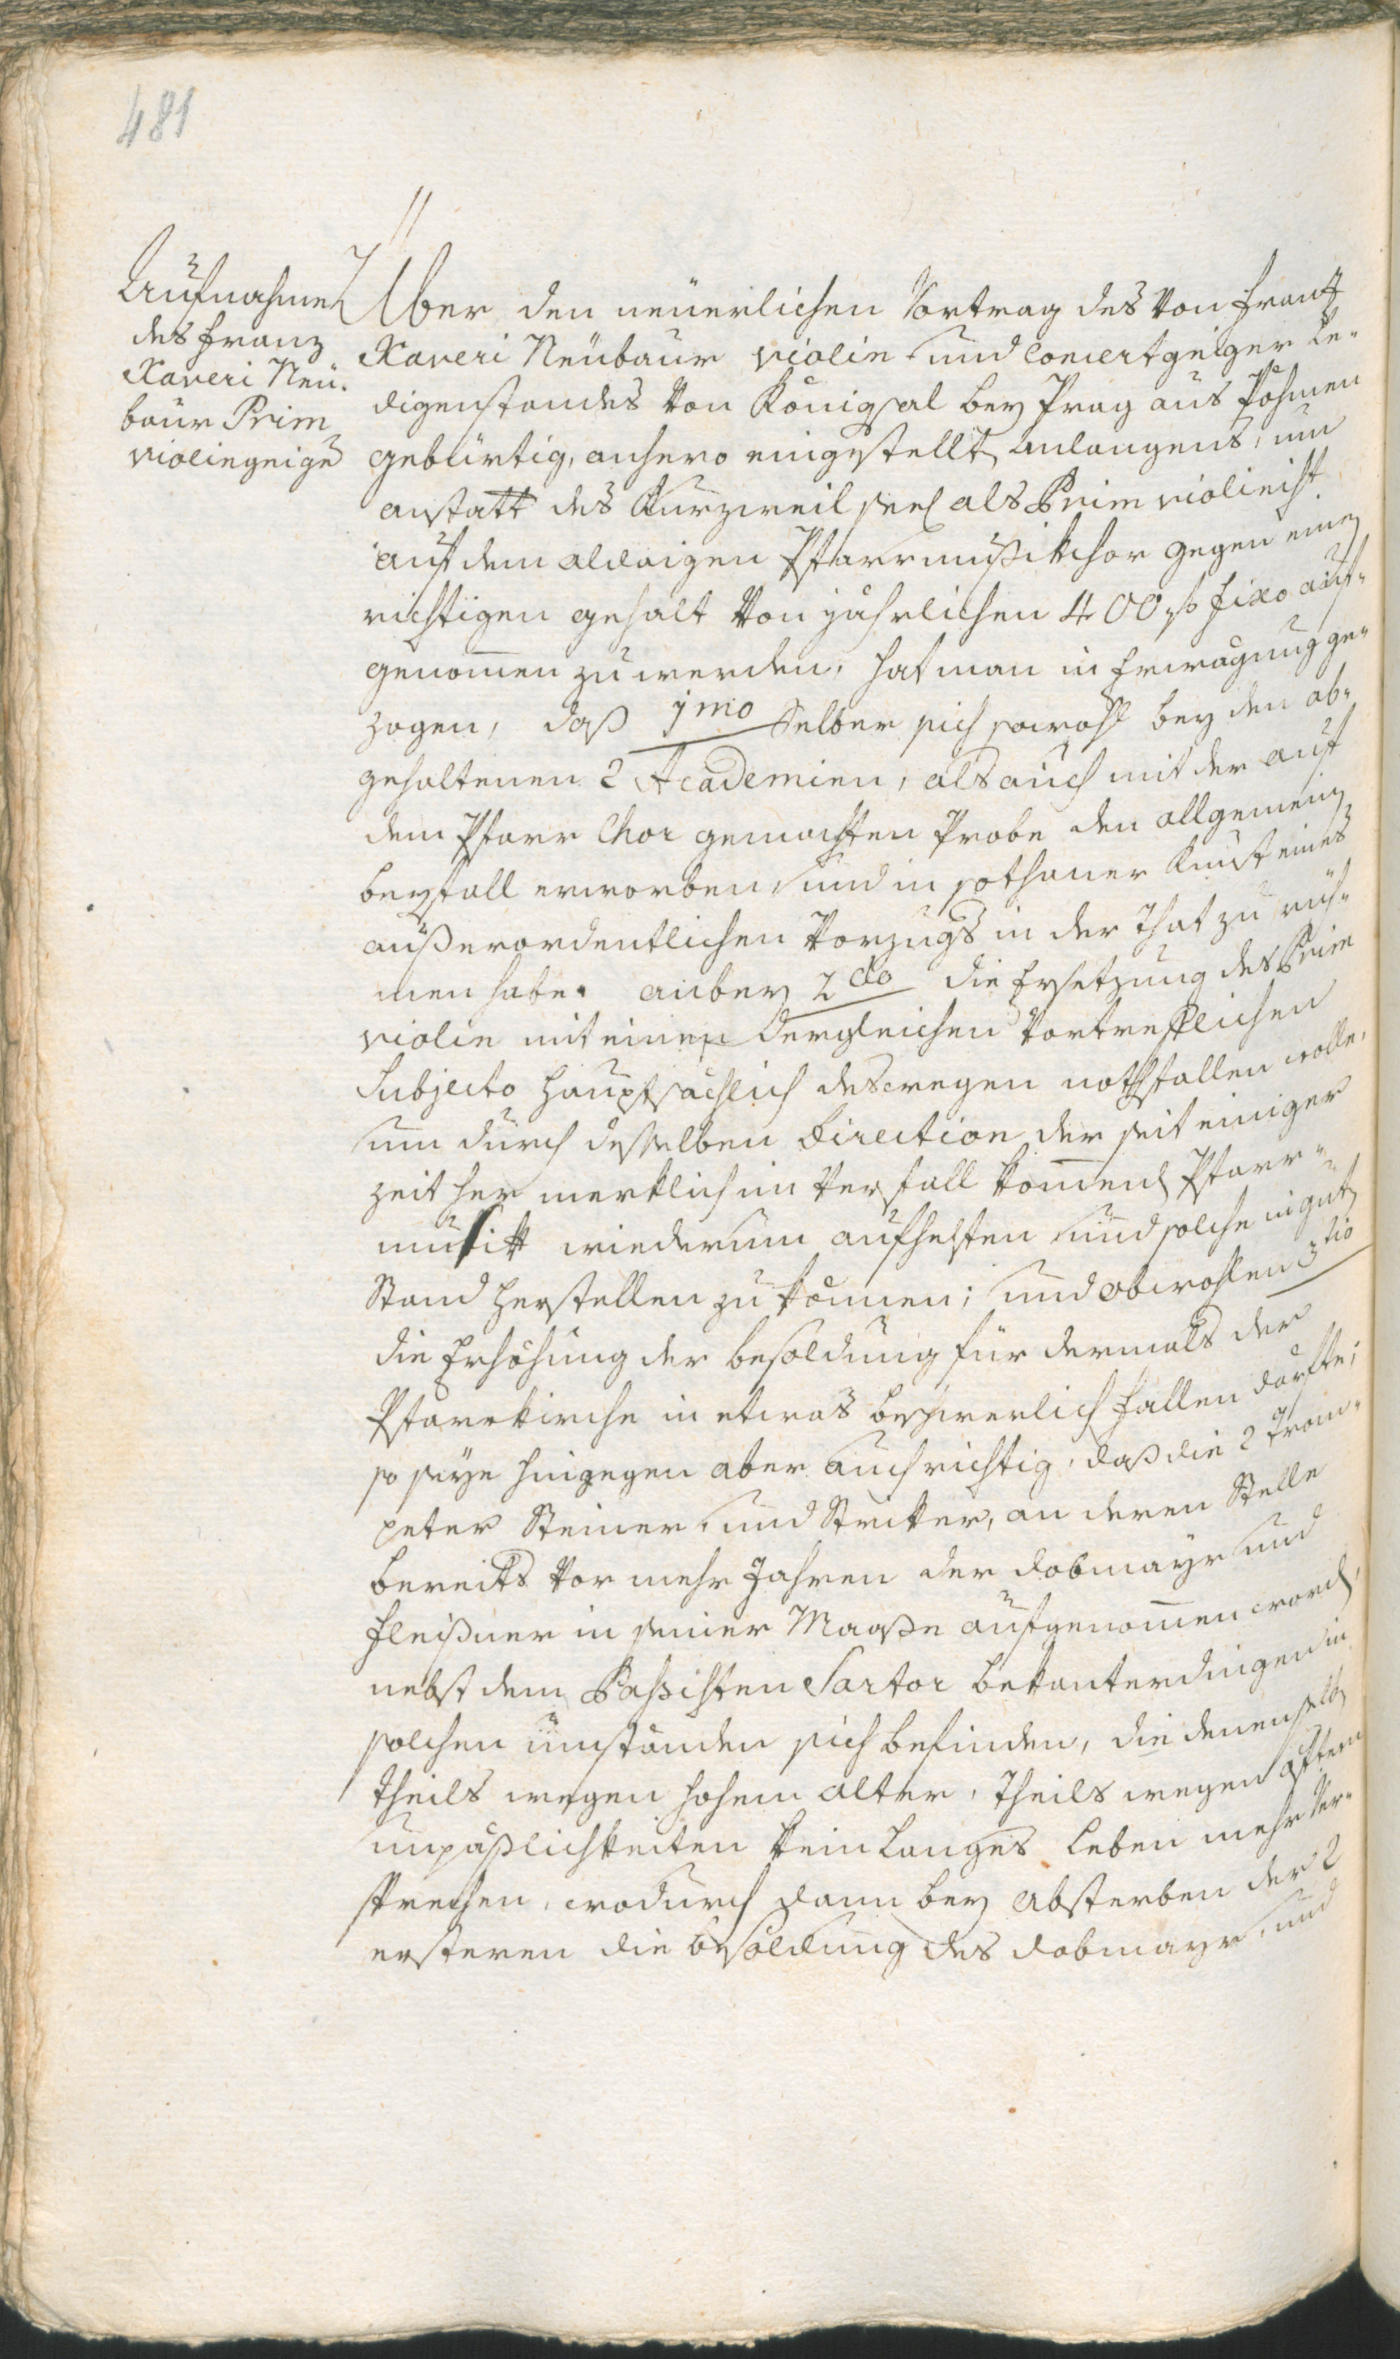 481
Aufnahme
des Franz
Xaveri Neü-
baur Prim
violingeigers
Uber den neüerlichen Vortrag des von Frantz
Xaveri Neübaur violin- und Concertgeiger Le-
digenstandes von Königsal bey Prag aus Böhmen
gebürtig, anhero eingestellt Anlangens, um
anstatt des Kurzweil seel. als Prim violinist
auf dem aldaigen Pfarrmusikchor gegen einen
richtigen gehalt von jährlichen 400 f fixo auf-
genommen zu werden, hat man in Erwägung ge-
zogen, daß 1mo Selber sich sowohl bey den ab-
gehaltenen 2 Academien, als auch mit der auf
dem Pfarr Chor gemachten Probe den allgemeinen
beyfall erworben und in sothaner Kunst eines
außerordentlichen Vorzugs in der That zu rüh-
men habe. anbey 2do die Ersetzung des Prim
violin mit einem dergleichen Vortrefflichen
Subjecto hauptsächlich deswegen nothfallen wolle,
um durch desselben Direction der seit einiger
zeit her merklich in Verfall kommend Pfarr-
musik wiederum aufhelfen und solche in guten
Stand herstellen zu können; und obwohlen 3tio
die Erhöhung der besoldung für dermals der
Pfarrkirche in etwas beschwerlich fallen därfte;
so seye hingegen aber auch richtig, daß die 2 Trom-
peter Steiner und Stricker, an deren Stelle
bereits vor mehr Jahren der Dobmayr und
Fleißner in seiner Maaße aufgenommen word,
nebst dem Baßisten Sartor bekanterdingen in
solchen umständen sich befinden, die denenselben
theils wegen hohem alter, theils wegen öftern
unpäßlichkeiten kein langes Leben mehr ver-
sprechen, wodurch dann bey Absterben der 2
ersteren die besoldung des Dobmayr, und